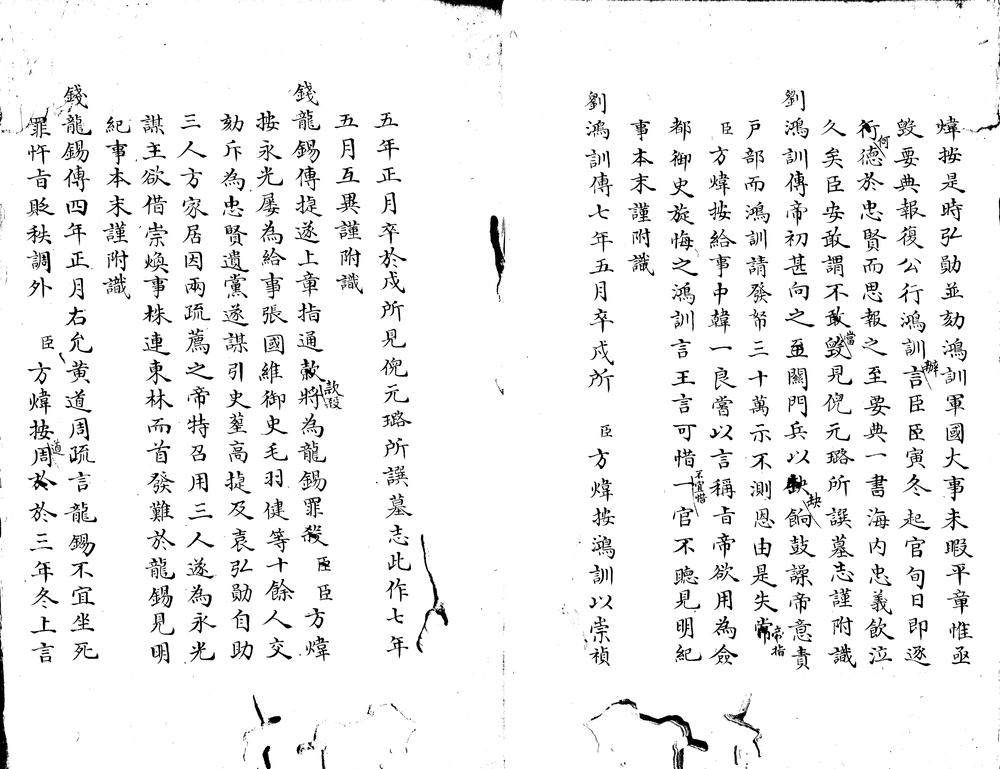 煒按是時弘勛並劾鴻訓軍國大事未暇平章惟亟
毀要典報復公行鴻訓言辦臣臣寅冬起官旬日即逐
行何德於忠賢而思報之至要典一書海內忠義飲泣
久矣臣安敢謂不敢當毀見倪元璐所譔墓志謹附識
劉鴻訓傳帝初甚向之至關門兵以缺缺餉鼓譟帝意責
戶部而鴻訓請發帑三十萬示不測恩由是失常帝指
臣方煒按給事中韓一良嘗以言稱旨帝欲用為僉
都御史旋悔之鴻訓言王言可惜一不宜惜官不聽見明紀
事本末謹附識
劉鴻訓傳七年五月卒戍所 臣方煒按鴻訓以崇禎
五年正月卒於戍所見倪元璐所譔墓志此作七年
五月互異謹附識
錢龍錫傳㨗遂上章指通款款殺將為龍錫罪殺臣臣方煒
按永光屢為給事張國維御史毛羽健等十餘人交
劾斥為忠賢遺黨遂謀引史𡎊高㨗及袁弘勛自助
三人方家居因兩疏薦之帝特召用三人遂為永光
謀主欲借崇煥事株連東林而首發難於龍錫見明
紀事本末謹附識
錢龍錫傳四年正月右允黄道周疏言龍錫不宜坐死
罪忤旨貶秩調外 臣方煒按道周於於三年冬上言